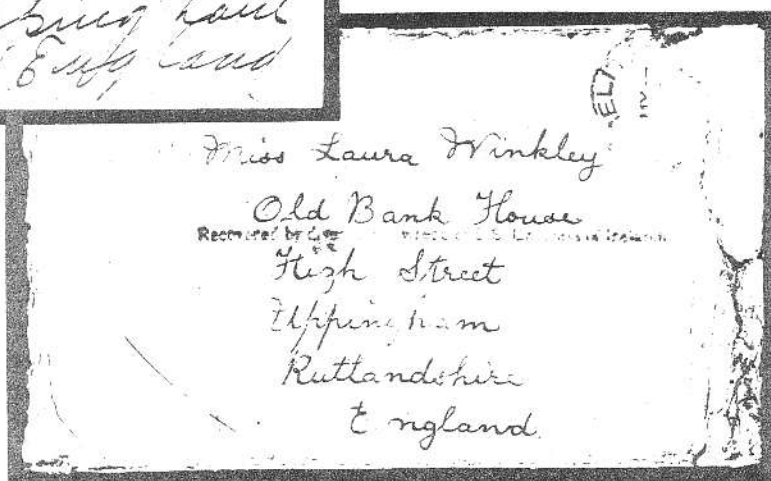 England
Miss Laura Winkley
Old Bank House
Recovered by
High Street
Uppingham
Rutlandshire
England